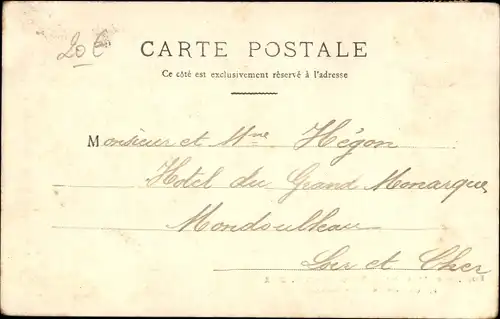 20€
CARTE POSTALE
Ce côté est exclusivement réservé à l'adresse
Monsieur et Mme Hégon
Hotel du Grand Monarque
Mondoubleau
Loir et Cher